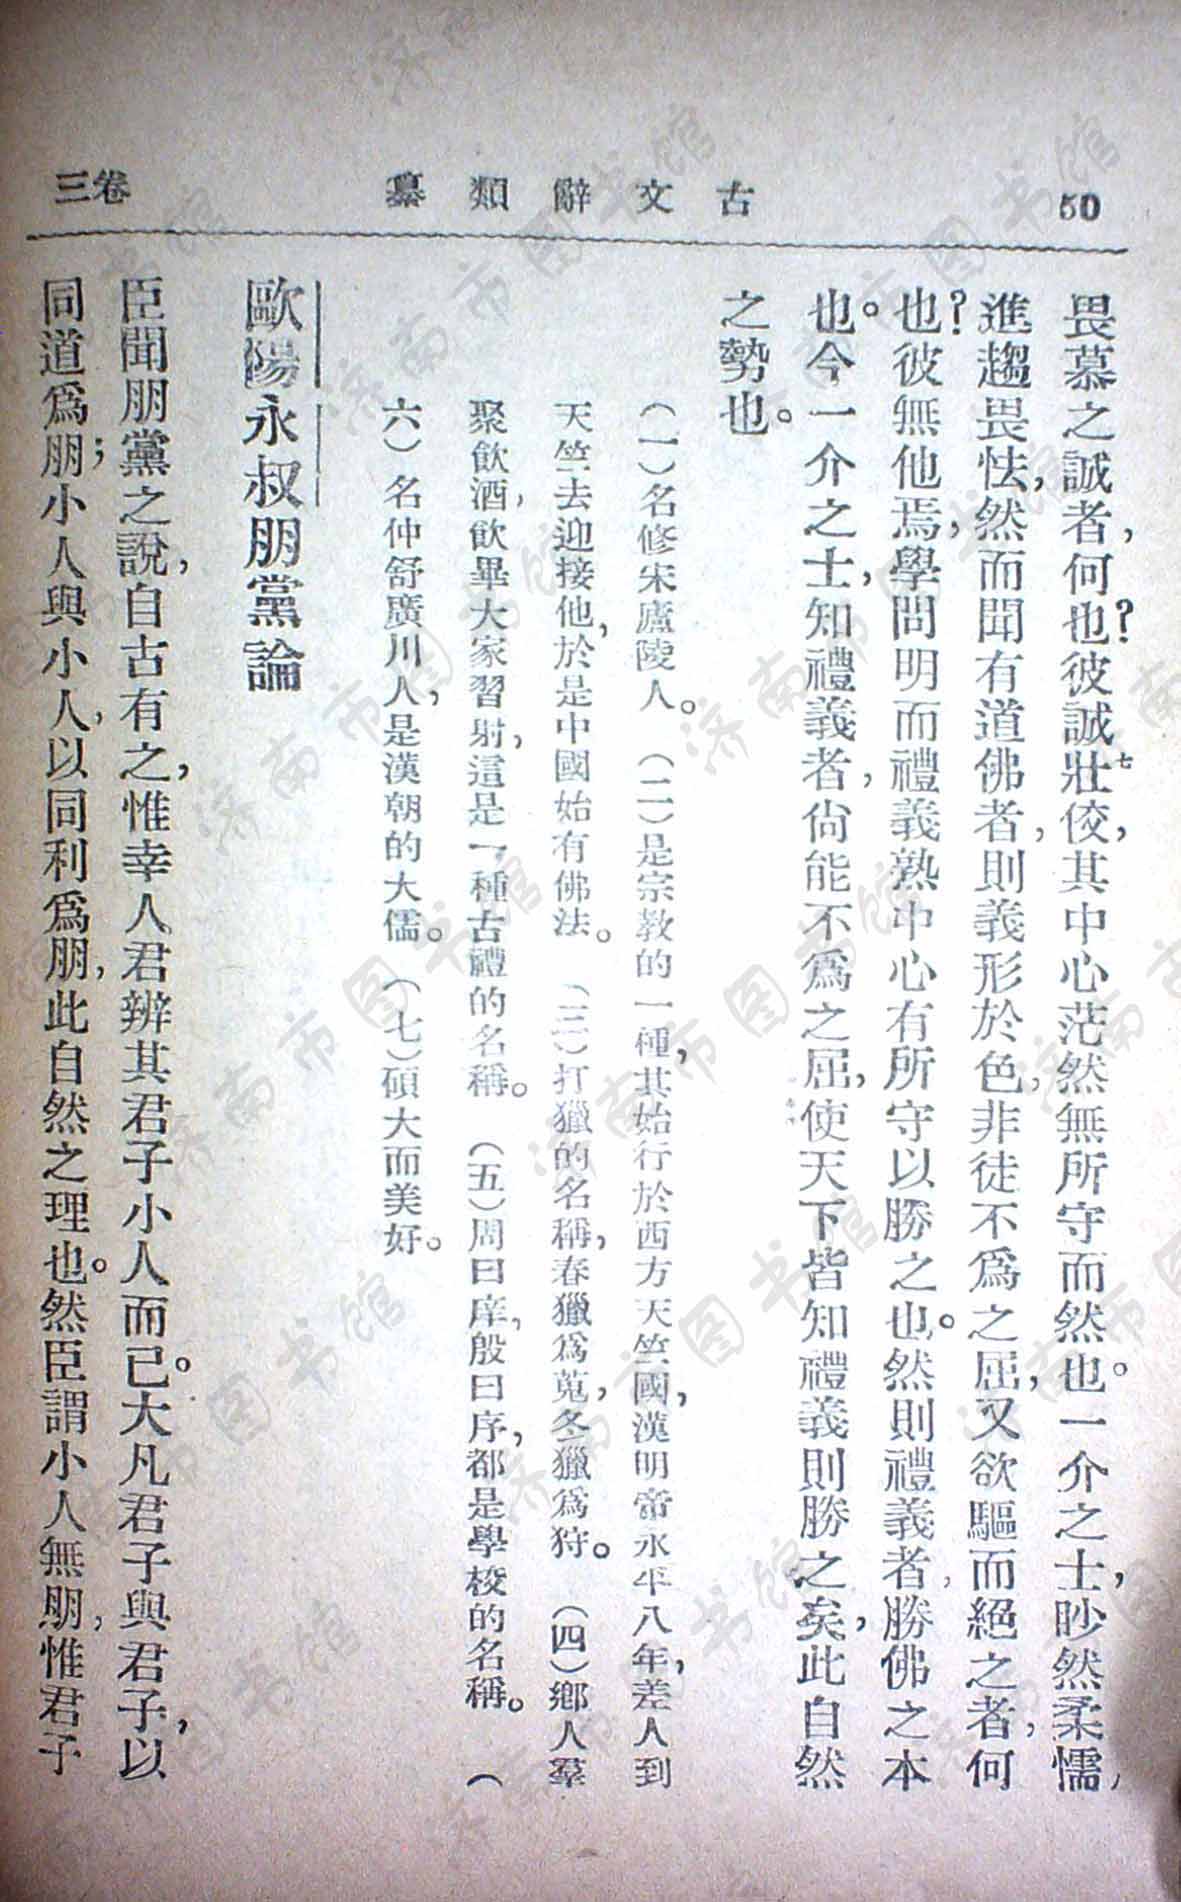 50
古文辭類纂
卷三
畏慕之誠者,何也?彼誠壯佼,七其中心茫然無所守而然也。一介之士,眇然柔懦,
進趨畏怯,然而聞有道佛者,則義形於色,非徒不爲之屈,又欲驅而絕之者,何
也?彼無他焉,學問明而禮義熟,中心有所守以勝之也。然則禮義者,勝佛之本
也。今一介之士,知禮義者,尙能不爲之屈,使天下皆知禮義則勝之矣,此自然
之勢也。
(一)名修宋廬陵人。(二)是宗教的一種,其始行於西方天竺國,漢明帝永平八年,差人到
天竺去迎接他,於是中國始有佛法。(三)打獵的名稱,春獵爲蒐,冬獵爲狩。(四)鄉人羣
聚飮酒,飮畢大家習射,這是一種古禮的名稱。(五)周曰庠,殷曰序,都是學校的名稱。(
六)名仲舒廣川人,是漢朝的大儒。(七)碩大而美好。
歐陽永叔朋黨論
臣聞朋黨之說,自古有之,惟幸人君辨其君子小人而已。大凡君子與君子,以
同道爲朋;小人與小人,以同利爲朋,此自然之理也。然臣謂小人無朋,惟君子
济南市图书馆